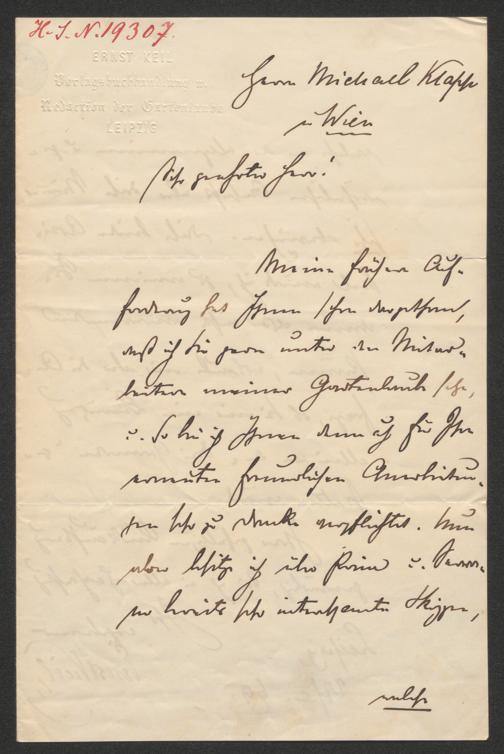 H. I. N. 19307.
ERNST KEIL
Verlagsbuchhandlung u.
Redaction der Gartenlaube
LEIPZIG
Herrn Michael Klapp
in Wien
Sehr geehrter Herr!
Meine frühere Auf-
forderung hat Ihnen schon dargethan,
daß ich Sie gern unter den Mitar-
beitern meiner Gartenlaube sehe,
u. so bin ich Ihnen denn auch für Ihr
erneuten freundlichen Anerbietun-
gen sehr zu Danke verpflichtet. Nun
aber besitze ich über u.
bereits sehr interessante Skizzen,
welche